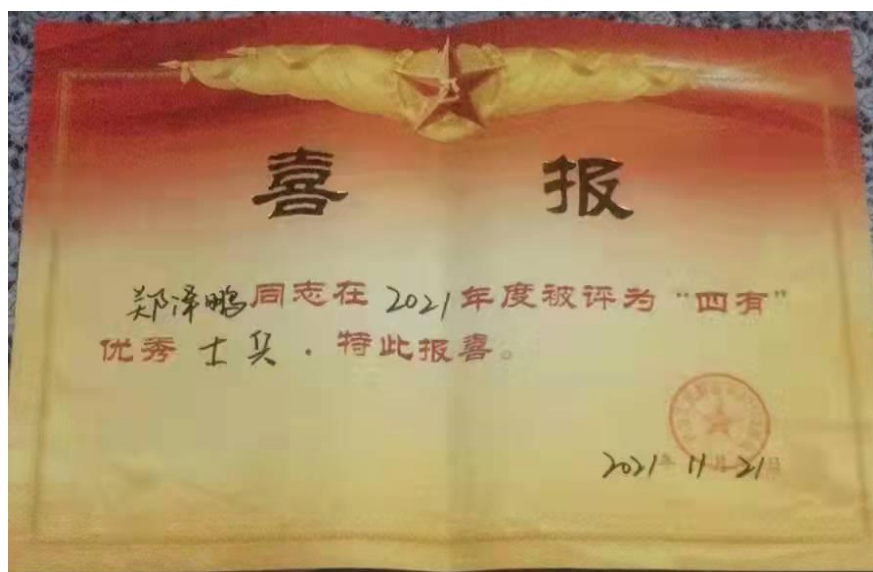 喜报
郑泽鹏同志在2021年度被评为“四有”
优秀士兵，特此报喜。
2021年11月21日